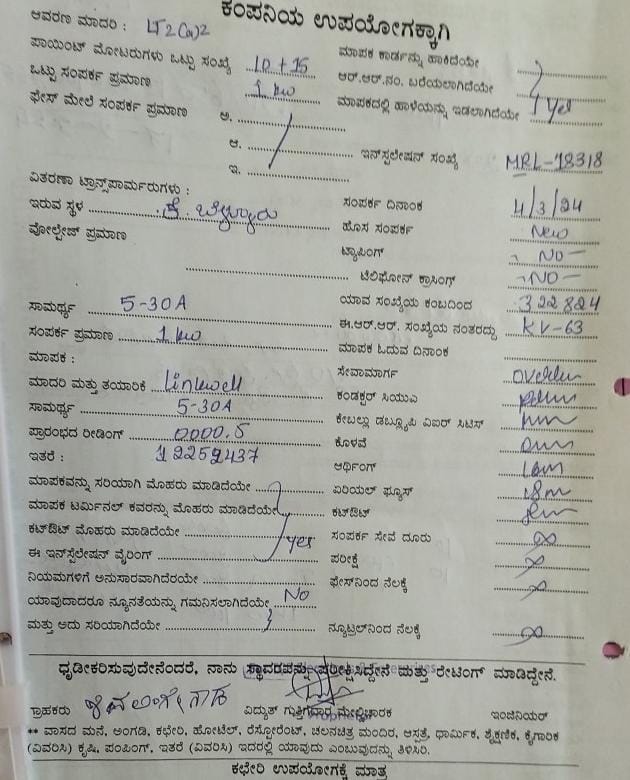 ಕಂಪನಿಯ ಉಪಯೋಗಕ್ಕಾಗಿ
ಆವರಣ ಮಾದರಿ : LT2(a)2
ಪಾಯಿಂಟ್ ಮೋಟರುಗಳು ಒಟ್ಟು ಸಂಖ್ಯೆ 10+15 ಮಾಪಕ ಕಾರ್ಡನ್ನು ಹಾಕಿದೆಯೇ
ಒಟ್ಟು ಸಂಪರ್ಕ ಪ್ರಮಾಣ 1 kw ಆರ್.ಆರ್.ನಂ. ಬರೆಯಲಾಗಿದೆಯೇ
ಫೇಸ್ ಮೇಲೆ ಸಂಪರ್ಕ ಪ್ರಮಾಣ ಅ. ಮಾಪಕದಲ್ಲಿ ಹಾಳೆಯನ್ನು ಇಡಲಾಗಿದೆಯೇ Yes
ಆ. ಇನ್‌ಸ್ಟಲೇಷನ್ ಸಂಖ್ಯೆ MRL-18318
ಇ.
ವಿತರಣಾ ಟ್ರಾನ್ಸ್‌ಪಾರ್ಮರುಗಳು : ಸಂಪರ್ಕ ದಿನಾಂಕ 4/3/24
ಇರುವ ಸ್ಥಳ : ಕೆ. ಬೆಳ್ಳೂರು ಹೊಸ ಸಂಪರ್ಕ New
ವೋಲ್ಟೇಜ್ ಪ್ರಮಾಣ ಟ್ಯಾಪಿಂಗ್ - NO -
ಟೆಲಿಫೋನ್ ಕ್ರಾಸಿಂಗ್ - NO -
ಸಾಮರ್ಥ್ಯ 5-30A ಯಾವ ಸಂಖ್ಯೆಯ ಕಂಬದಿಂದ 322824
ಸಂಪರ್ಕ ಪ್ರಮಾಣ 1 kw ಈ.ಆರ್.ಆರ್. ಸಂಖ್ಯೆಯ ನಂತರದ್ದು KV-63
ಮಾಪಕ : ಮಾಪಕ ಓದುವ ದಿನಾಂಕ
ಮಾದರಿ ಮತ್ತು ತಯಾರಿಕೆ Linkwell ಸೇವಾಮಾರ್ಗ
ಸಾಮರ್ಥ್ಯ 5-30A ಕಂಡಕ್ಟರ್ ಸಿಯುಎ
ಪ್ರಾರಂಭದ ರೀಡಿಂಗ್ 0000.5 ಕೇಬಲ್ಲು ಡಬ್ಲ್ಯೂಪಿ ವಿಐರ್ ಸಿಟಿಸ್
ಇತರೆ : 12259437 ಕೊಳವೆ
ಆರ್ಥಿಂಗ್
ಮಾಪಕವನ್ನು ಸರಿಯಾಗಿ ಮೊಹರು ಮಾಡಿದೆಯೇ ಏರಿಯಲ್ ಫ್ಯೂಸ್
ಮಾಪಕ ಟರ್ಮಿನಲ್ ಕವರನ್ನು ಮೊಹರು ಮಾಡಿದೆಯೇ ಕಟ್‌ಔಟ್
ಕಟ್‌ಔಟ್ ಮೊಹರು ಮಾಡಿದೆಯೇ Yes ಸಂಪರ್ಕ ಸೇವೆ ದೂರು
ಈ ಇನ್‌ಸ್ಟಲೇಷನ್ ವೈರಿಂಗ್ ಪರೀಕ್ಷೆ
ನಿಯಮಗಳಿಗೆ ಅನುಸಾರವಾಗಿದೆರೆಯೇ ಫೇಸ್‌ನಿಂದ ನೆಲಕ್ಕೆ
ಯಾವುದಾದರೂ ನ್ಯೂನತೆಯನ್ನು ಗಮನಿಸಲಾಗಿದೆಯೇ No
ಮತ್ತು ಅದು ಸರಿಯಾಗಿದೆಯೇ ನ್ಯೂಟ್ರಲ್‌ನಿಂದ ನೆಲಕ್ಕೆ
ಧೃಡೀಕರಿಸುವುದೇನೆಂದರೆ, ನಾನು ಸ್ಥಾವರವನ್ನು ಪರೀಕ್ಷಿಸಿದ್ದೇನೆ ಮತ್ತು ರೇಟಿಂಗ್ ಮಾಡಿದ್ದೇನೆ.
ಗ್ರಾಹಕರು ವಿದ್ಯುತ್ ಗುತ್ತಿಗೆದಾರ ಮೇಲ್ವಿಚಾರಕ ಇಂಜಿನಿಯರ್
** ವಾಸದ ಮನೆ, ಅಂಗಡಿ, ಕಛೇರಿ, ಹೋಟೆಲ್, ರೆಸ್ಟೋರೆಂಟ್, ಚಲನಚಿತ್ರ ಮಂದಿರ, ಆಸ್ಪತ್ರೆ, ಧಾರ್ಮಿಕ, ಶೈಕ್ಷಣಿಕ, ಕೈಗಾರಿಕ
(ವಿವರಿಸಿ) ಕೃಷಿ, ಪಂಪಿಂಗ್, ಇತರೆ (ವಿವರಿಸಿ) ಇದರಲ್ಲಿ ಯಾವುದು ಎಂಬುವನ್ನು ತಿಳಿಸಿರಿ.
ಕಛೇರಿ ಉಪಯೋಗಕ್ಕೆ ಮಾತ್ರ